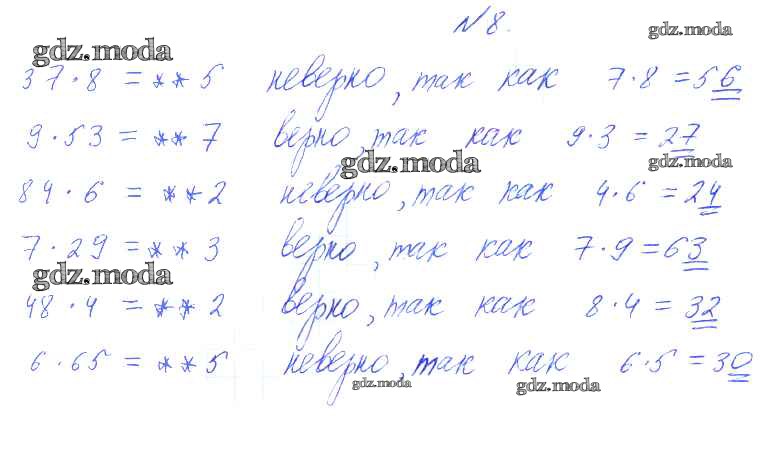 N 8.
gdz.moda gdz.moda
37 · 8 = ** 5 неверно, так как 7 · 8 = 56
9 · 53 = ** 7 верно, так как 9 · 3 = 27
gdz.moda gdz.moda
84 · 6 = ** 2 неверно, так как 4 · 6 = 24
7 · 29 = ** 3 верно, так как 7 · 9 = 63
gdz.moda
48 · 4 = ** 2 верно, так как 8 · 4 = 32
6 · 65 = ** 5 неверно, так как 6 · 5 = 30
gdz.moda gdz.moda